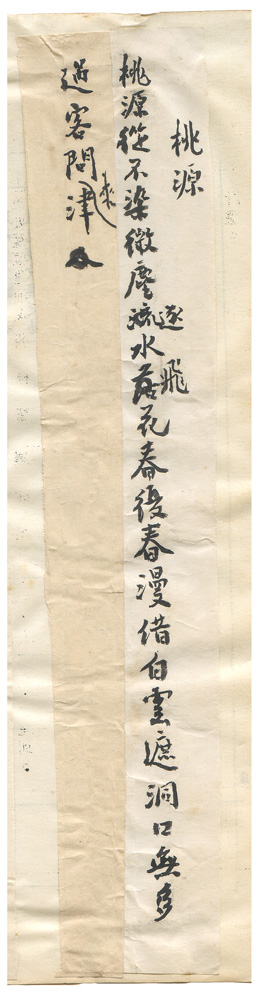 桃源
桃源從不染微塵逐水飛花春復春漫借白雲遮洞口無多
過客來問津